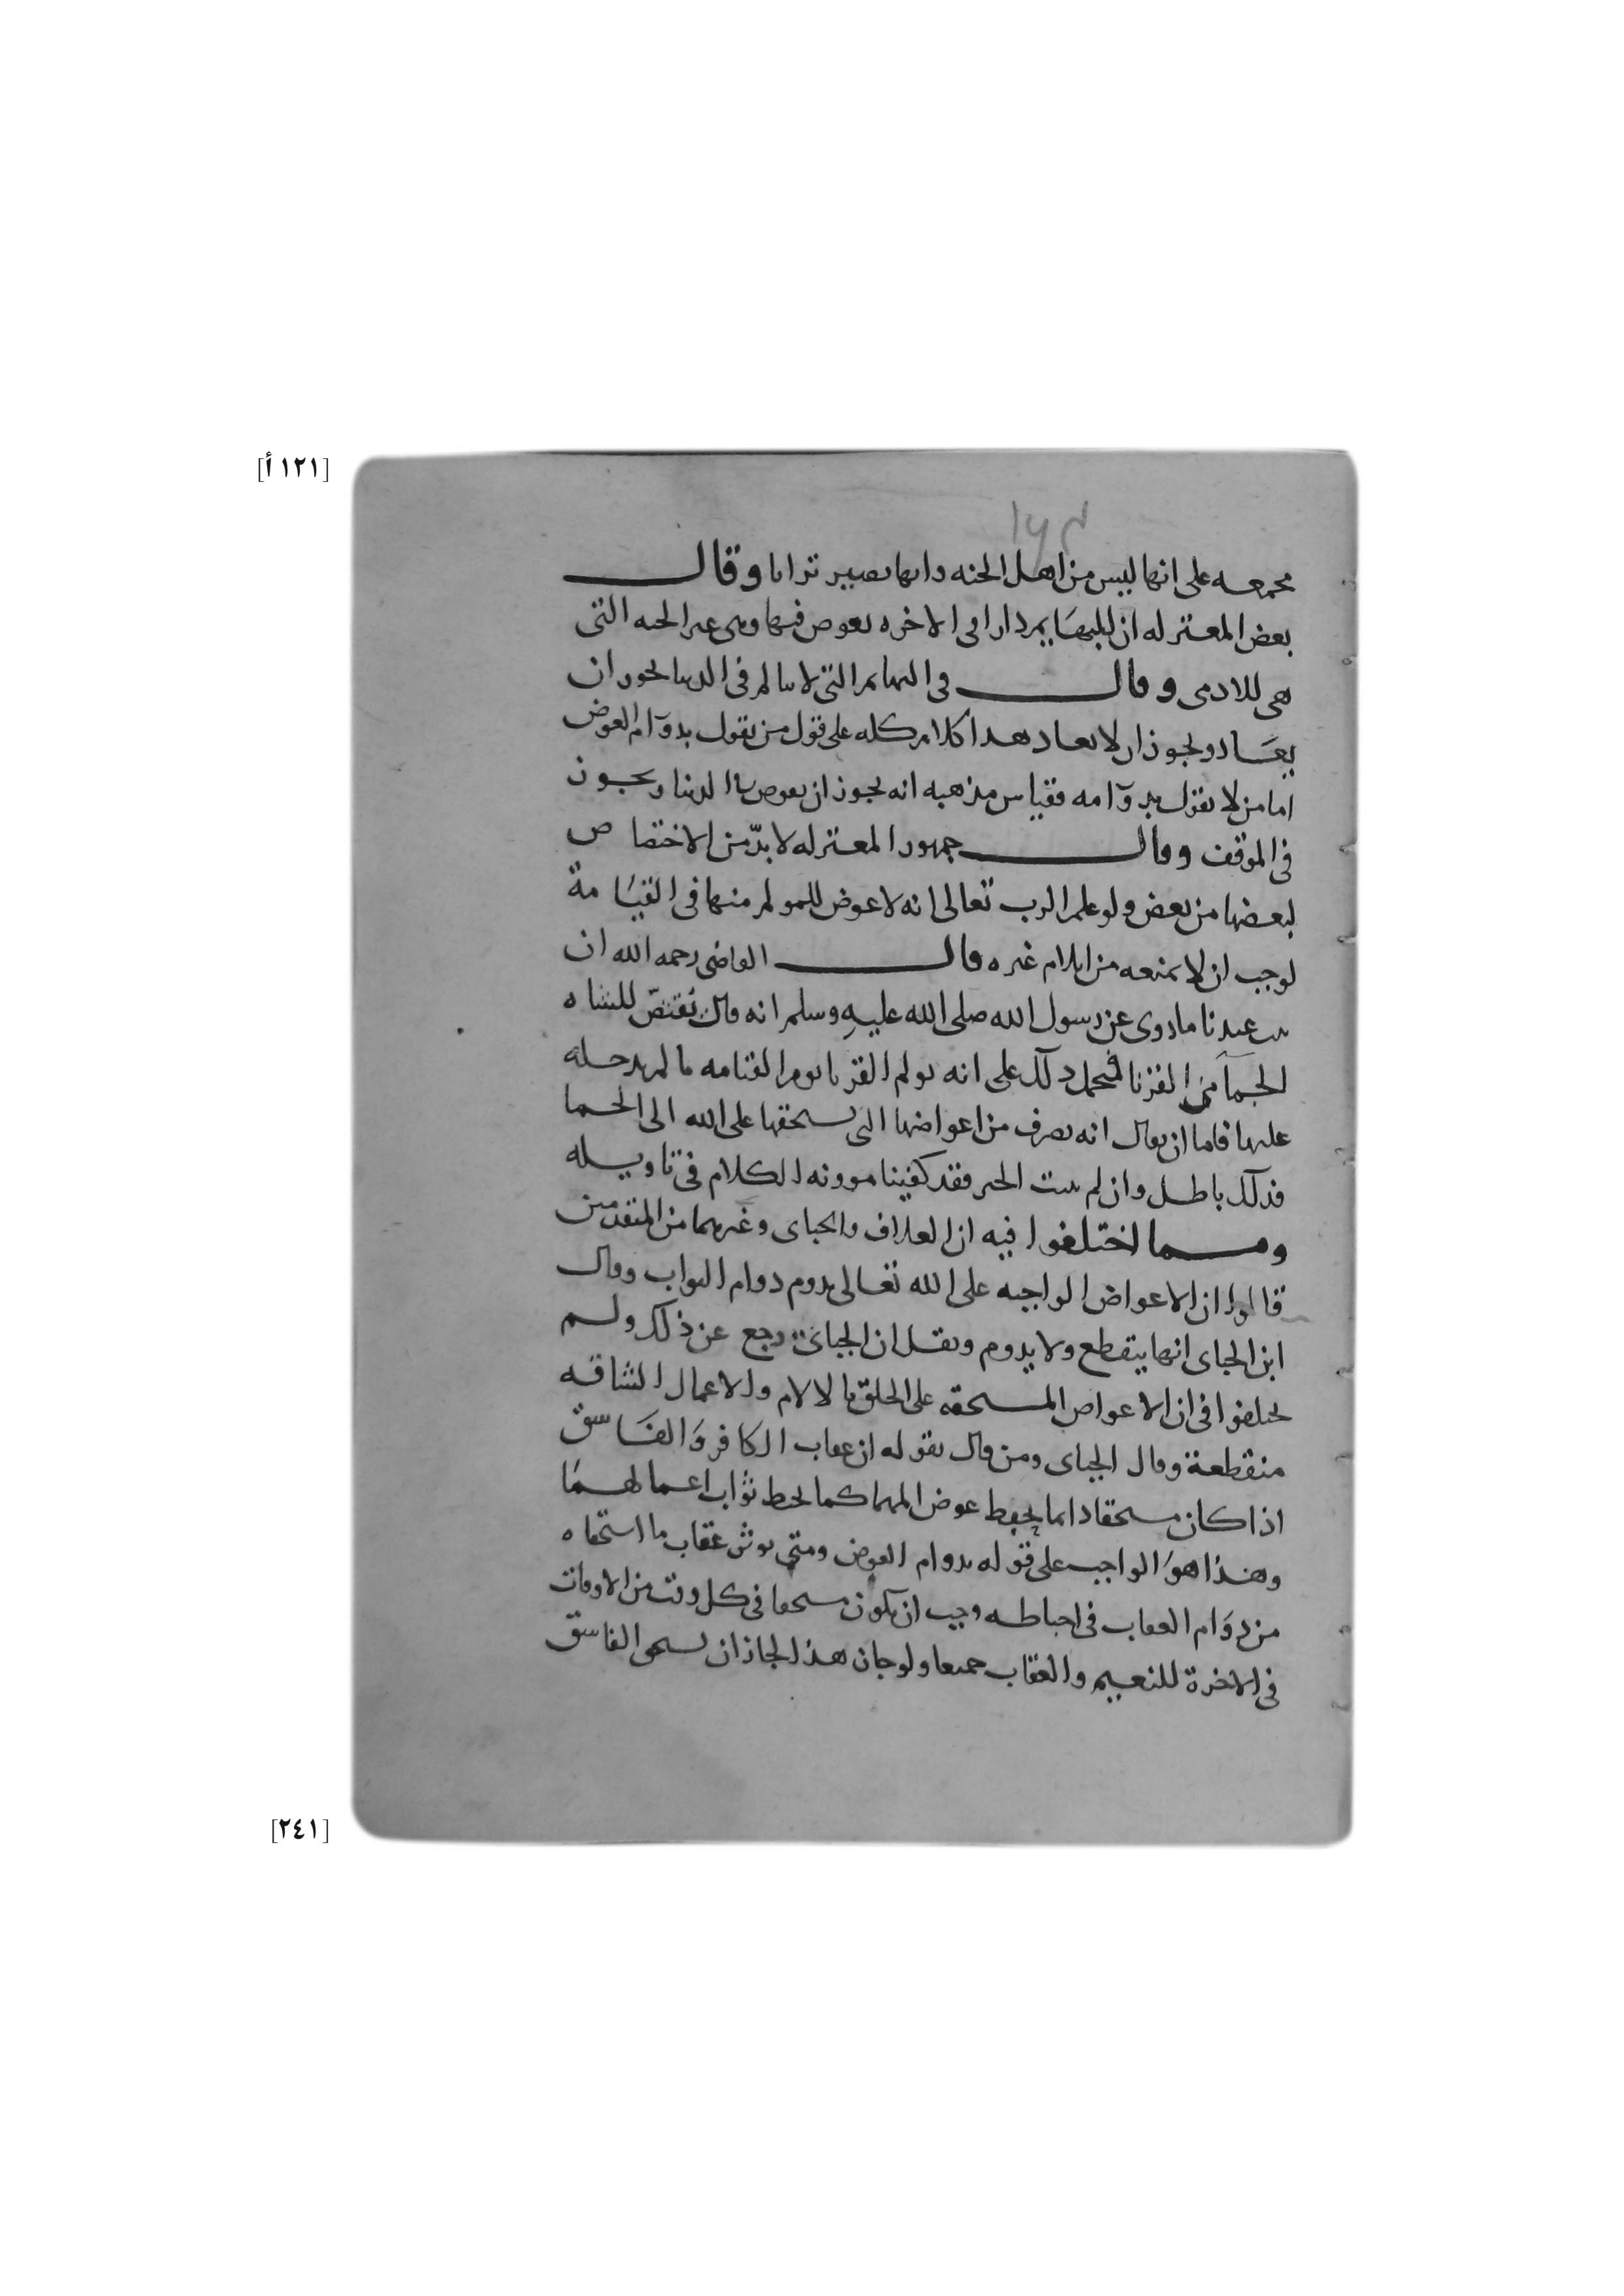 [١٢١ أ]
مجمعه على انها ليس من اهل الجنه وانها تصير ترابا وقال
بعض المعتزله ان للبهايم دارا في الاخره يعوض فيها وهي غير الجنه التي
هي للادمي وقال في البهايم التي لا تالم في الدنيا يجوز ان
يعاد ويجوز ان لا يعاد هذا كلام كله على قول من يقول بدوام العوض
اما من لا يقول بدوامه فقياس مذهبه انه يجوز ان يعوض الدنيا ويجوز
في الموقف وقال جمهور المعتزله لا بدّ من الاختصاص
لبعضها من بعض ولو علم الرب تعالى انه لا عوض للمولم منها في القيامة
لوجب ان لا يمنعه من ايلام غيره قال القاضي رحمه الله ان
عندنا ما روي عن رسول الله صلى الله عليه وسلم انه قال يُقتصّ للشاه
الجما من القرنا فيحمل ذلك على انه يولم القرنا يوم القيامه ما لم يدخله
عليها فاما ان يقال انه يصرف من اعواضها التي يستحقها على الله الى الجما
فذلك باطل وان لم يثبت الخبر فقد كفينا موونه الكلام في تاويله
ومما اختلفوا فيه ان العلاف والجباي وغيرهما من المتقدمين
قالوا ان الاعواض الواجبه على الله تعالى يدوم دوام الثواب وقال
ابن الجباي انها ينقطع ولا يدوم ونقل ان الجباي رجع عن ذلك ولم
يختلفوا في ان الاعواض المستحقه على الخلق بالالام والاعمال الشاقه
منقطعة وقال الجباي ومن قال بقوله ان عقاب الكافر والفاسق
اذا كان مستحقا دايما يحبط عوض المهما كما يحبط ثواب اعمالهما
وهذا هو الواجب على قوله بدوام العوض ومتى عقاب ما استحقاه
من دوام العقاب في احباطه وجب ان يكون مستحقا في كل وقت من الاوقات
في الاخرة للنعيم والعقاب جميعا ولو جاز هذا لجاز ان يستحق الفاسق
[٢٤١]